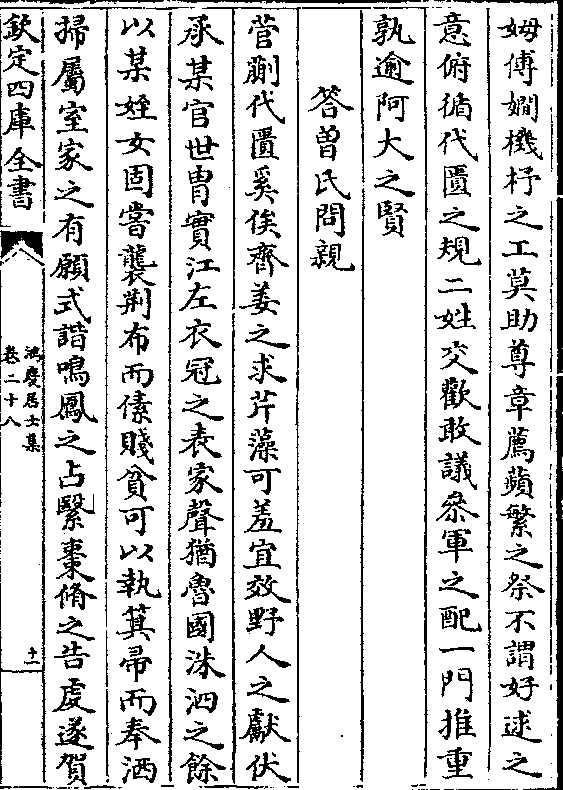 姆傅嫺機杼之工莫助尊章薦蘋繁之祭不謂好逑之
意俯循代匱之規二姓交歡敢議叅軍之配一門推重
孰逾阿大之賢
答曽氏問親
菅蒯代匱奚俟齊姜之求芹藻可羞宜效野人之獻伏
承某官世胄實江左衣冠之表家聲猶魯國洙泗之餘
以某姪女固嘗襲荆布而傃賤貧可以執箕帚而奉洒
掃屬室家之有願式諧鳴鳳之占繄棗脩之告䖍遂賀
欽定四庫全書
鴻慶居士集
卷二十八
十二